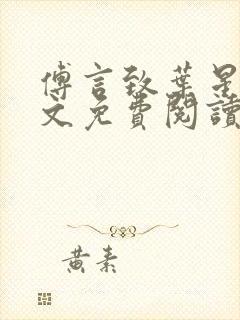 傅言致葉星
文免費閱讀
黃素